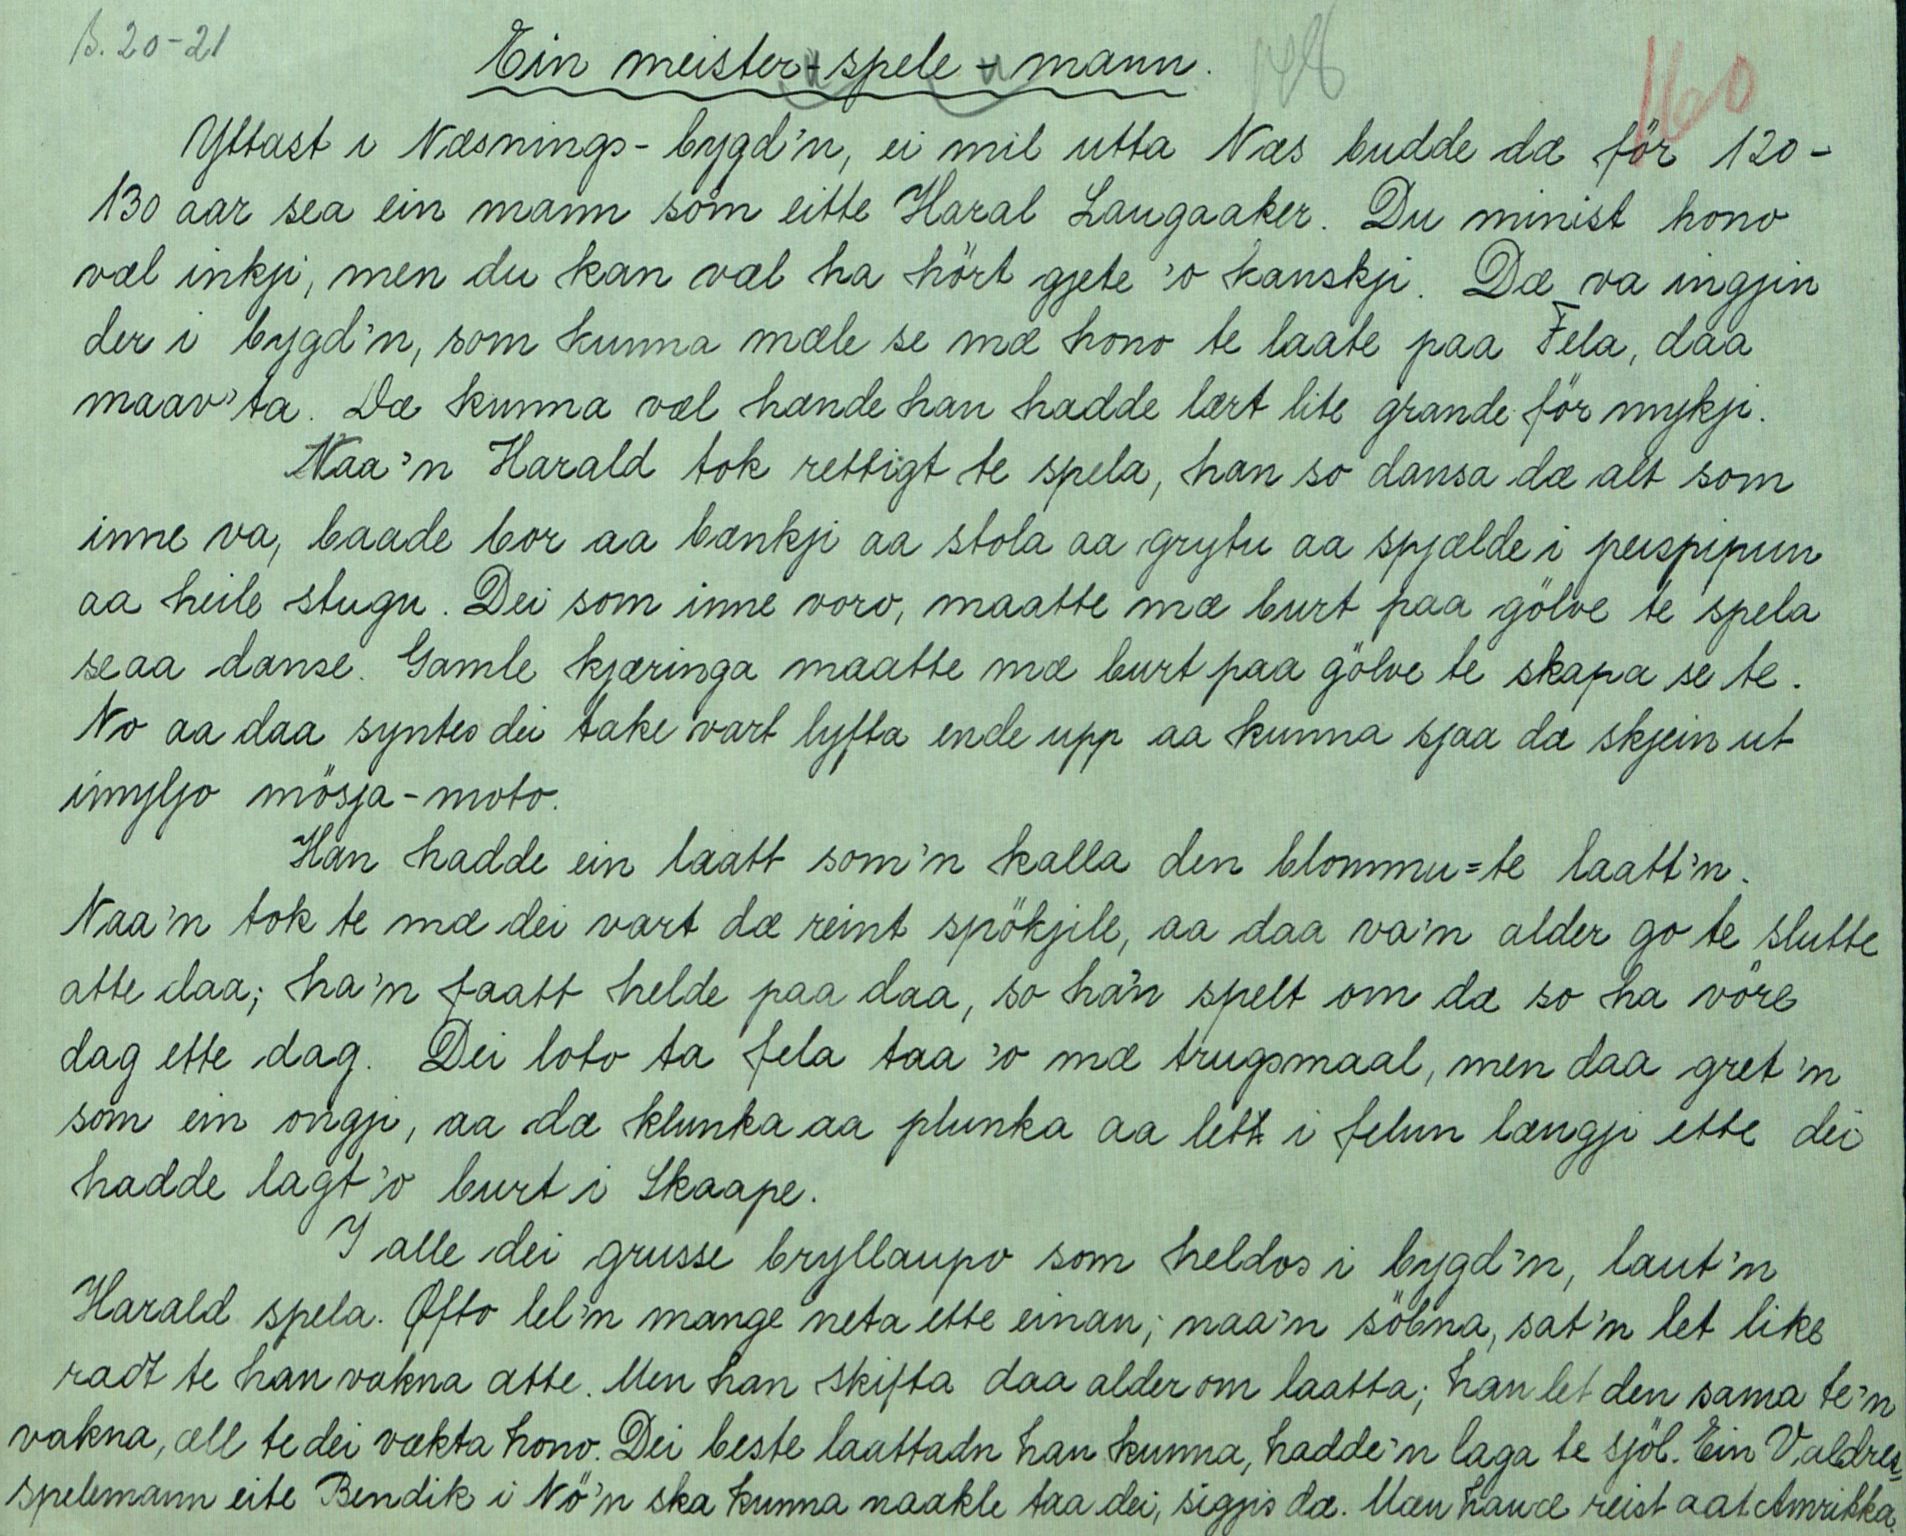 B. 20-21
Ein meister-spele-mann.
160
Yttast i Næsnings-bygd'n, ei mil utta Næs budde dæ för 120-
130 aar sea ein mann som eitte Haral Laugaaker. Du minist hono
væl inkji, men du kan væl ha hört gjete 'o kanskji. Dæ va ingjin
der i bygd'n, som kunna mæle se mæ hono te laate paa Fela, daa
maav'ta. Dæ kunna væl hænde han hadde lært lite grande för mykji.
Naa'n Harald tok rettigt te spela, han so dansa dæ alt som
inne va, baade bor aa bænkji aa stola aa grytu aa spjælde i peispipun
aa heile stugu. Dei som inne voro, maatte mæ burt paa gölve te spela
se aa danse. Gamle kjæringa maatte mæ burt paa gölve te skapa se te.
No aa daa syntes dei take vart lyfta ende upp aa kunna sjaa dæ skjein ut
imyljo mösja-moto.
Han hadde ein laatt som'n kalla den blommu=te laatt'n.
Naa'n tok te mæ dei vart dæ reint spökjile, aa daa va'n alder go te slutte
atte daa; ha'n faatt helde paa daa, so ha'n spelt om dæ so ha vöre
dag ette dag. Dei loto ta fela taa 'o mæ trugsmaal, men daa gret'n
som ein ongji, aa dæ klunka aa plunka aa lett i felun længji ette dei
hadde lagt'o burt i Skaape.
I alle dei grusse bryllaupo som heldos i bygd'n, laut'n
Harald spela. Ofto let'n mange neta ette einan; naa'n söbna, sat'n let like
radt te han vakna atte. Men han skifta daa alder om laatta; han let den sama te'n
vakna, æll te dei vækta hono. Dei beste laattadn han kunna, hadde'n laga te sjöl. Ein Valdres-
spelemann eite Bendik i Nö'n ska kunna naakle taa dei, sigjis dæ. Mæn han æ reist aat Amrikka.